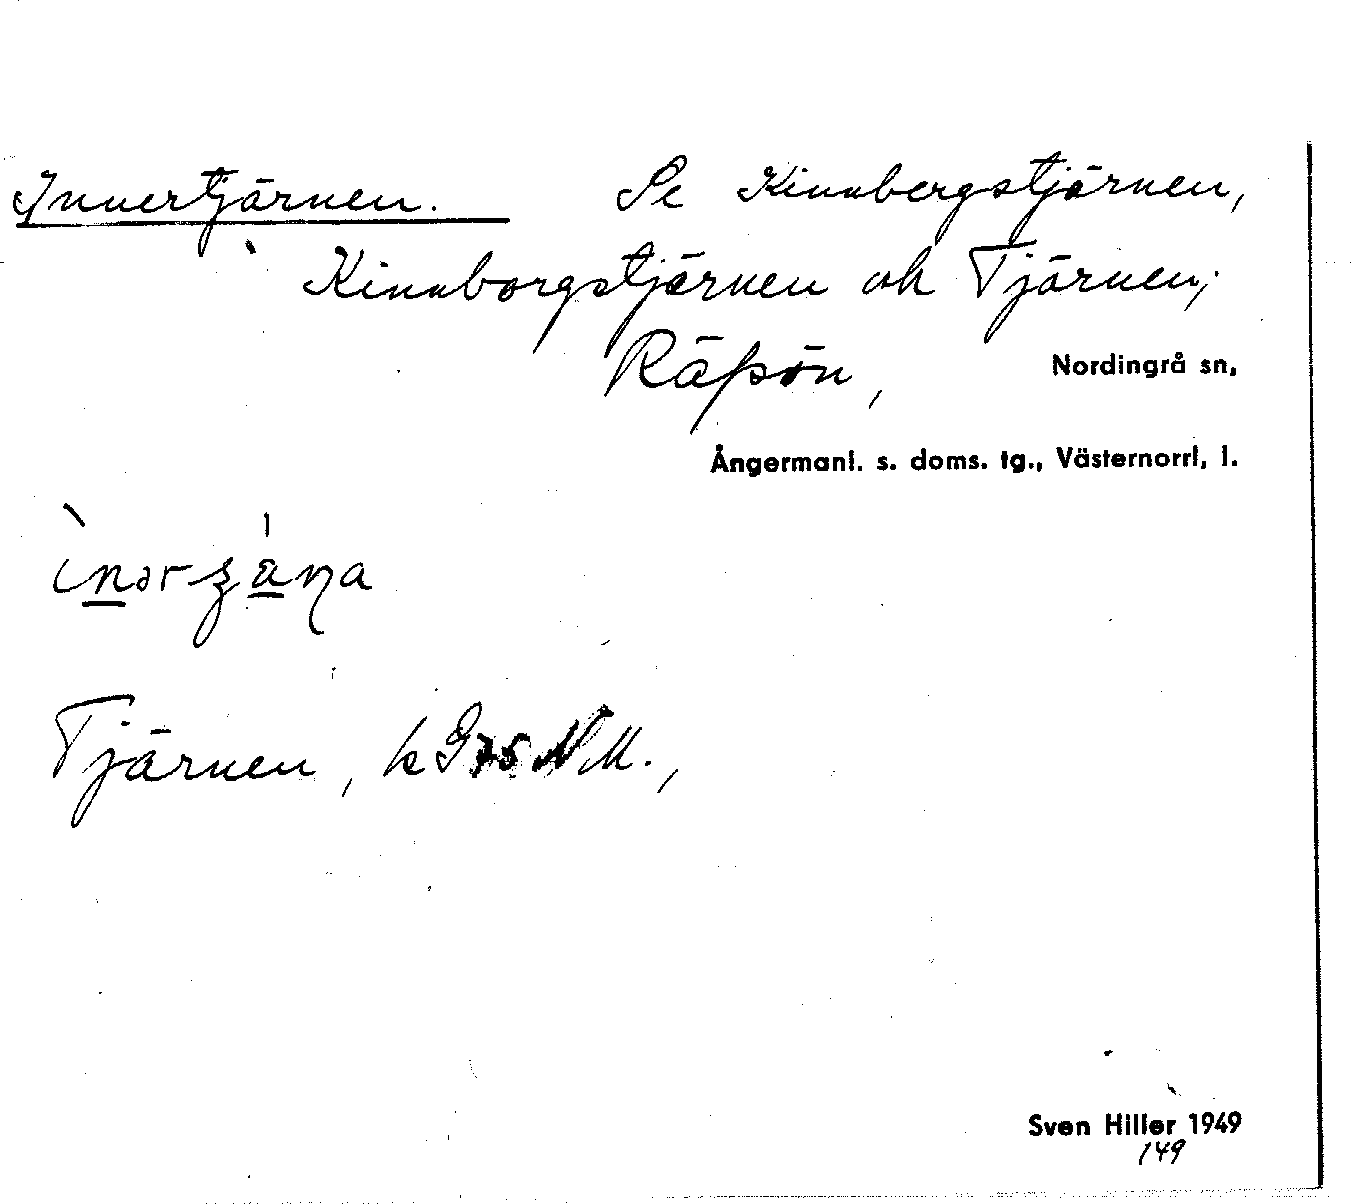 Innertjärnen. Se Kinnbergstjärnen,
Kinnborgstjärnen ok Tjärnen;
Räpön, Nordingrå sn,
Ångermanl. s. doms. tg., Västernorrl, l.
Tjärnen, k G75 M.,
Sven Hiller 1949
149